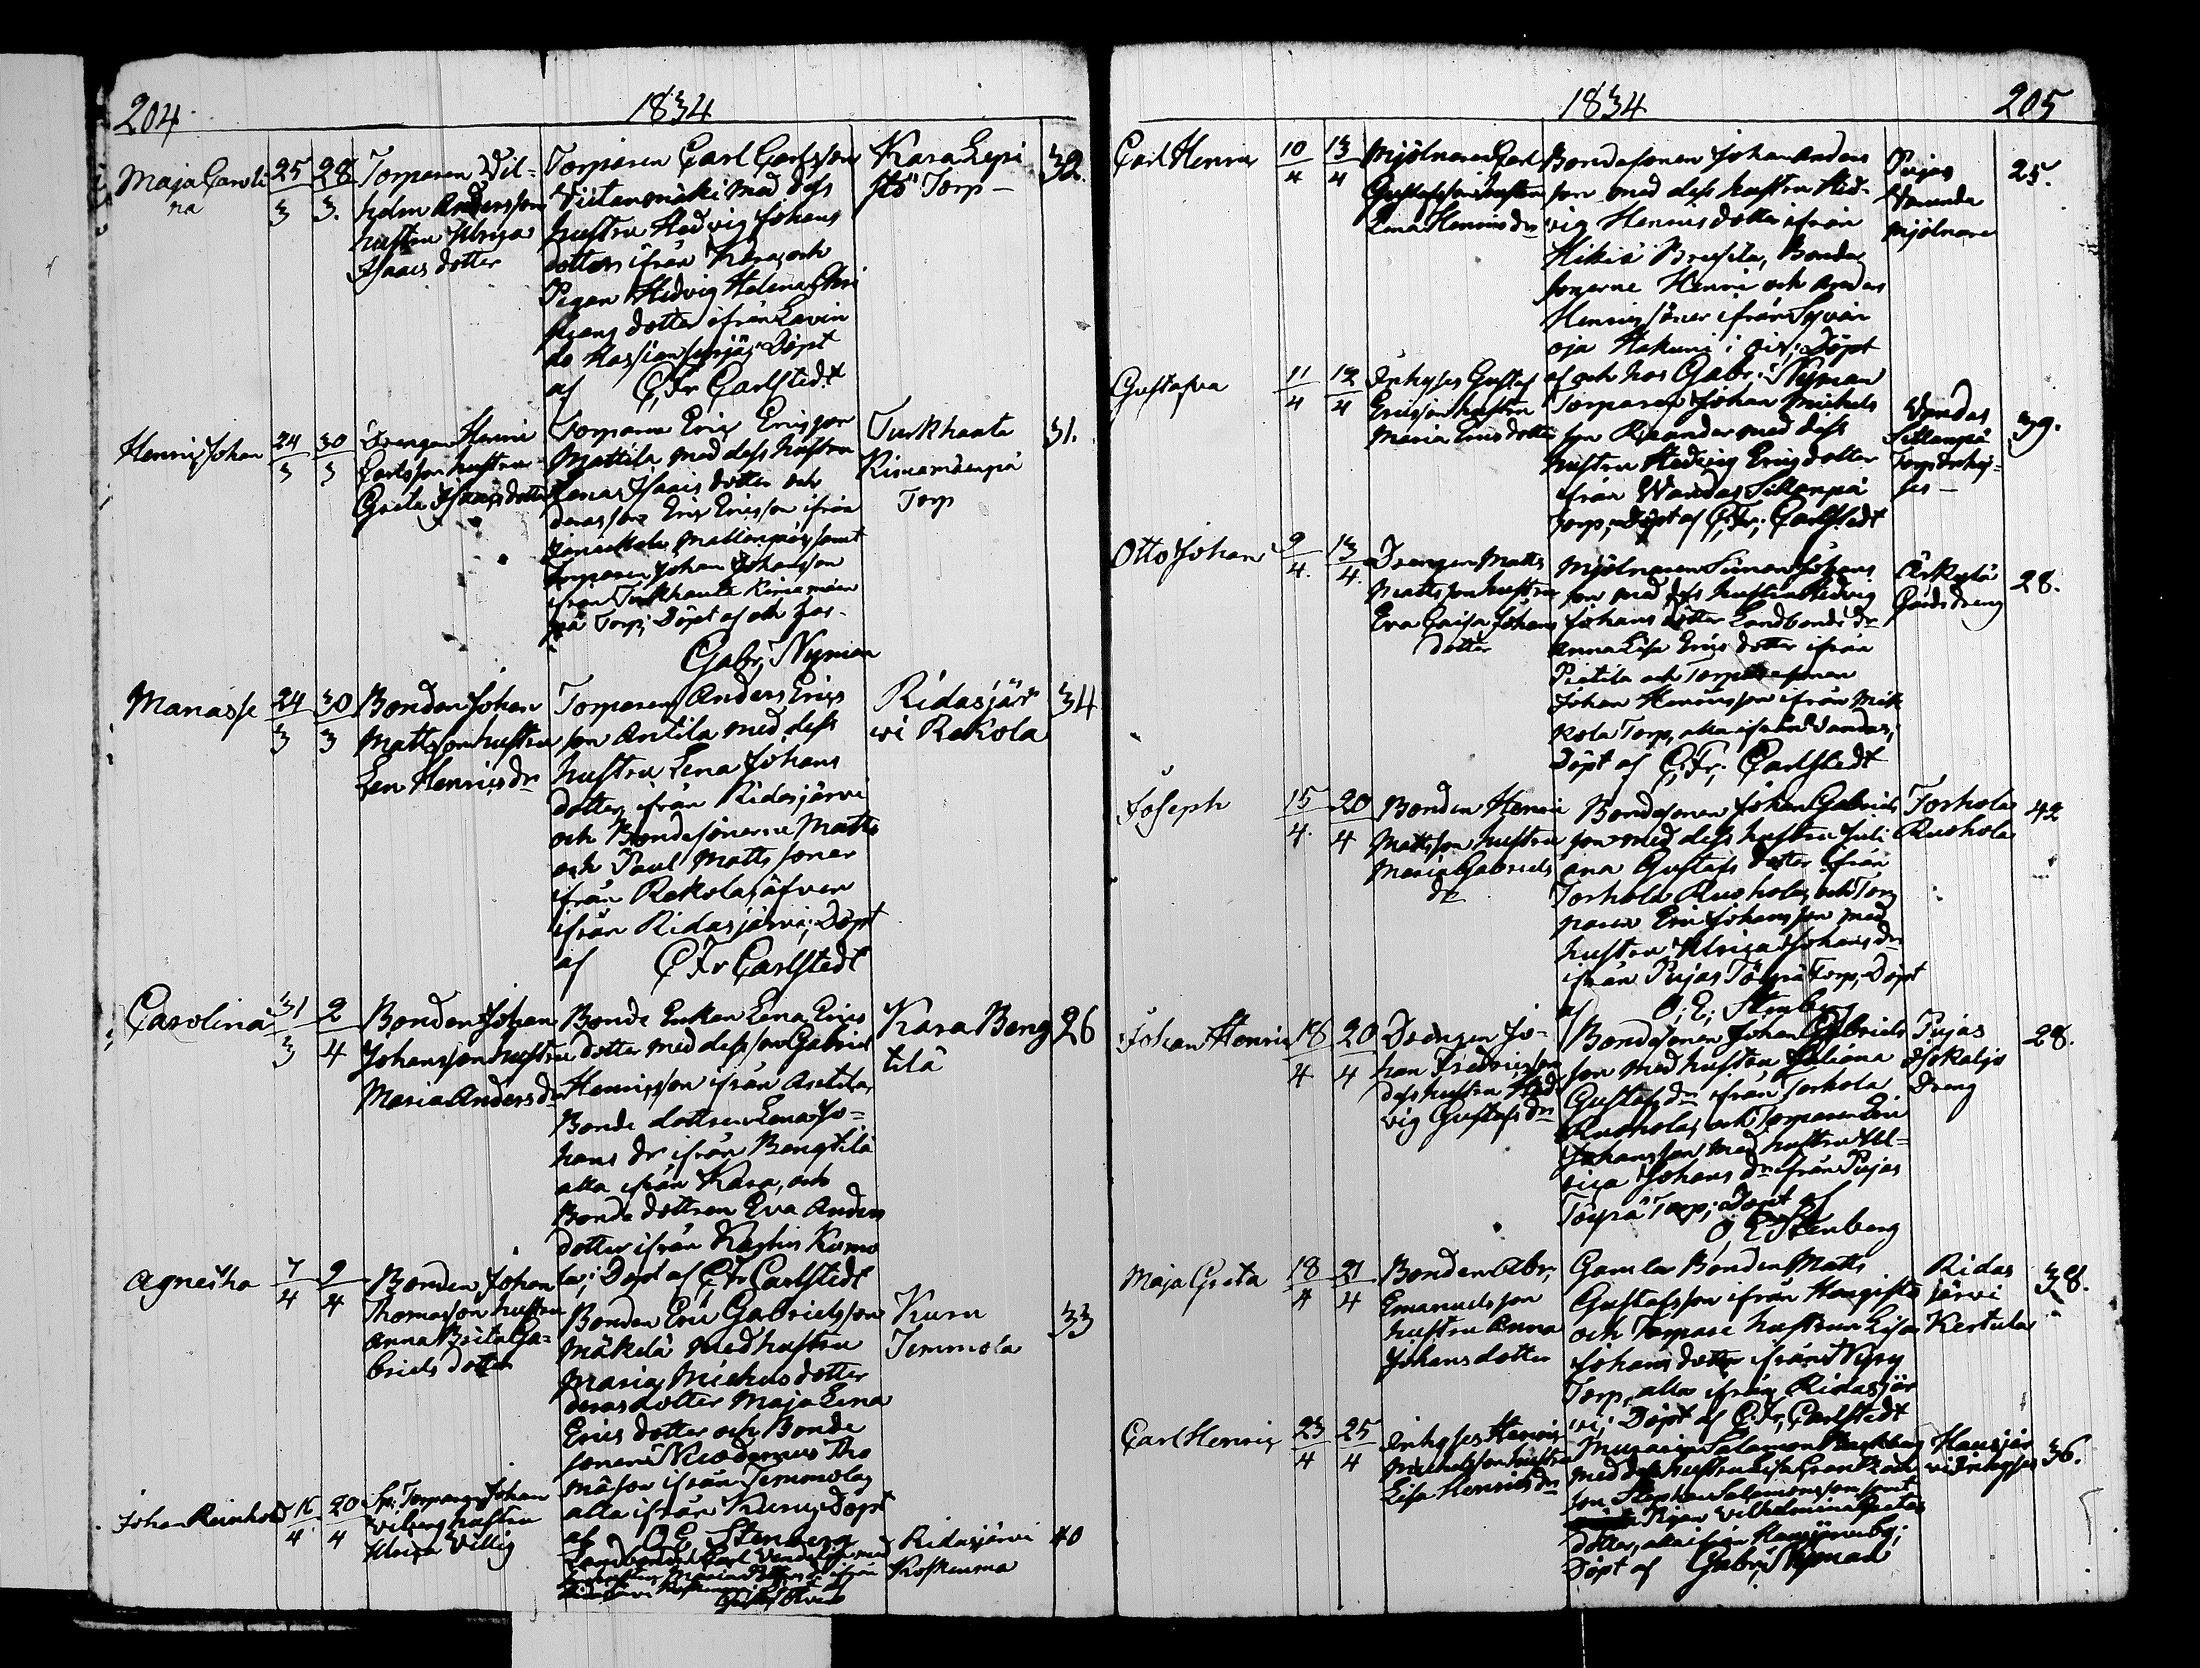 204
1834
Maja Caroli
na
25 28
3 3.
Torparen Vil=
helm Andersson
hustru Ulrica
Isaacs dotter
Torparen Carl Carlsson
med dess
hustru Hedvig Johans
dotter ifrån Kara och
Pigan Hedvig Helena
dotter ifrån
Döpt
af C, Fr Carlstedt
Kara Lepi
stö Torp
32.
Henric Johan
24 30
3 3
Drengen Henric
Carlsson hustru
Greta Isaacs dotter
Torparen Eric Ericsson
Mattila med dess hustru
Lena Isaacs dotter och
deras son Eric Ericsson ifrån
samt
Torparen Johan Johansson
ifrån Turkhauta
pä Torp; Döpt af och hos
Gabr, Nyman
Turkhauta
Torp
31.
Manasse
24 30
3 3
Bonden Johan
Mattsson hustru
Len Henrics dr
Torparen Anders Erics
son Antila med dess
hustru Lena Johans
dotter ifrån Ridasjärvi
och Bondesönerne Matts
och Paul Matts söner
ifrån Rekola, äfven
ifrån Ridasjärvi; Döpt
af C Fr Carlstedt
Ridasjär
vi Rekola
34
Carolina
31 2
3 4
Bonden Johan
Johansson hustru
Maria Anders dr
Bonde Enkan Lena Erics
dotter med dess son Gabriel
Henricsson ifrån
Bonde dottren Lena Jo=
hans dr ifrån Bengtilä
alla ifrån Kara, och
Bonde dottren Eva Anders
dotter ifrån
Döpt af C, Fr Carlstedt
Kara Beng
tilä
26
Agnetha
7 9
4 4
Bonden Johan
Thomasson hustru
Anna Brita Ga=
briels dotter
Bonden Eric Gabrielsson
Mäkelä med hustru
Maria Michels dotter
deras dotter Maja Lena
Erics dotter och Bonde
sonen Nicodemus Tho
masson ifrån Temmola,
alla ifrån Kuru; Döpt
af O, E, Stenberg
Kuru
Temmola
33
Johan Reinhold
16 20
4 4
Johan
hustru
Ulrica
Carl
Maria
Ridasjärvi
Koskenma
40
1834
205
Carl Henric
10 13
4 4
Mjölnaren Carl
Gustafsson hustru
Lena Henrics dr
Bondesonen Johan Anders
son med dess hustru Hed=
vig Henrics dotter ifrån
Hikiä Bonde
sönerne Henric och Anders
Henrics söner ifrån
oja Döpt
af och hos Gabr. Nyman
Pujas
mjölnare
25.
Gustafva
11 12
4 4
Inhyses Gustaf
Ericsson hustru
Maria Erics dotter
Torparen Johan Michels
son med dess
hustru Hedvig Erics dotter
ifrån Vandas Sillanpä
Torp; Döpt af C, Fr; Carlstedt
Vandas
Sillanpä
Torp Inhy=
ses
39.
Otto Johan
9 13
4. 4.
Drengen Matts
Mattsson hustru
Eva Caisa Johans
dotter
Mjölnaren Simon Johans
son med dess hustru Hedvig
Johans dotter Landbonde dr
Anna Lisa Erics dotter ifrån
Pietilä och Torparesonen
Johan Henricsson ifrån Mik
kola Torp, alla ifrån Vandas;
Döpt af C; Fr; Carlstedt
Gårds dreng
28.
Joseph
15 20
4. 4
Bonden Henric
Mattsson hustru
Maria Gabriels
dr
Bondesonen Johan Gabriels
son med dess hustru Juli
ana Gustafs dotter ifrån
Torhola Ruohola och Tor
paren Eric Johansson med
hustru Ulrica Johans dr
ifrån Pujas Töyrä Torp; Döpt
af O; E; Stenberg
Torhola
Ruohola
42
Johan Henric
18 20
4 4
Drengen Jo=
han Fredricsson
dess hustru Hed
vig Gustafs dr
Bondesonen Johan Gabriels
son med hustru Juliana
Gustafs dr ifrån Torhola
Ruohola, och Torparen Eric
Johansson med hustru Ul=
rica Johans dr ifrån Pujas
Töyrä Torp; Döpt af
O, E Stenberg
Pujas
Dreng
28.
Maja Greta
18 21
4 4
Bonden Abr,
Emanuelsson
hustru Anna
Johansdotter
Gamla Bonden Matts
Gustafsson ifrån Haugisto
och Torpare hustrun Lisa
Johans dotter ifrån
Torp, alla ifrån Ridasjär
vi; Döpt af C; Fr, Carlstedt
Ridas
järvi
Kertula
38.
Carl Henric
23 25
4 4
Inhyses Henric
Michelsson hustru
Lisa Henrics dr
Salomon
med dess hustru Lisa
son Stephan Salomonsson samt
Pigan Vilhelmina
dotter, alla ifrån
Döpt af Gabr, Nyman
Hausjär
vi Inhyses
36.